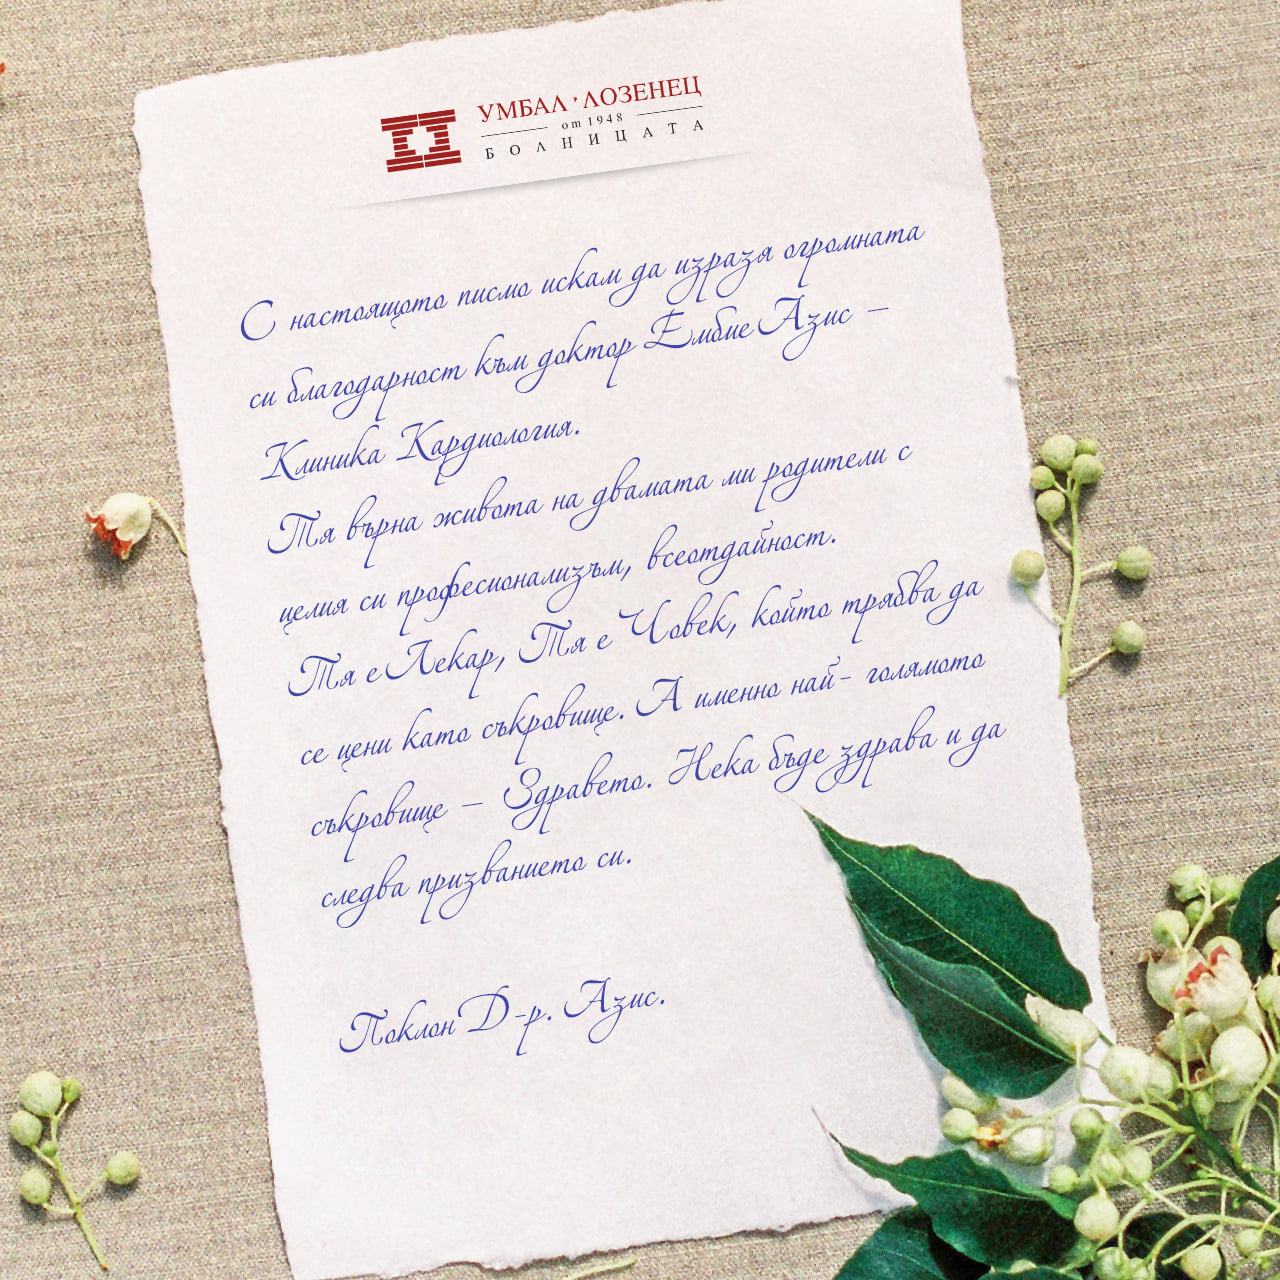 УМБАЛ · ЛОЗЕНЕЦ
от 1948
БОЛНИЦАТА
С настоящото писмо искам да изразя огромната
си благодарност към доктор Ембие Азис –
Клиника Кардиология.
Тя върна живота на двамата ми родители с
целия си професионализъм, всеотдайност.
Тя е Лекар, Тя е Човек, който трябва да
се цени като съкровище. А именно най- голямото
съкровище – Здравето. Нека бъде здрава и да
следва призванието си.
Поклон Д-р. Азис.